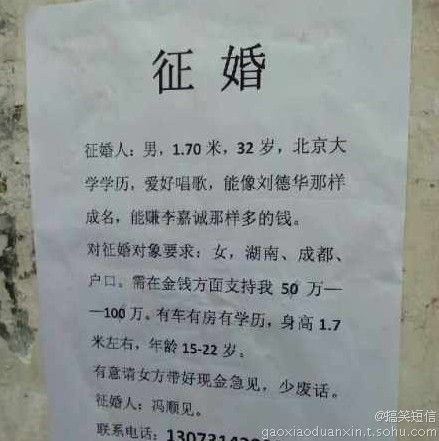 征婚
征婚人：男，1.70 米，32 岁，北京大
学学历，爱好唱歌，能像刘德华那样
成名，能赚李嘉诚那样多的钱。
对征婚对象要求：女，湖南、成都、
户口。需在金钱方面支持我 50 万—
—100 万。有车有房有学历，身高 1.7
米左右，年龄 15-22 岁。
有意请女方带好现金急见，少废话。
征婚人：冯顺见。
联系电话：
@搞笑短信
gaoxiaoduanxin.t.sohu.com